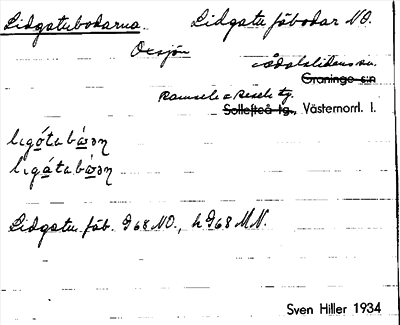 Lidgatubodarna. Lidgatu fäbodar NO.
Oxsjön
i Ådalslidens sn.
Graninge s:n
Ramsele o Resele tg.
Sollefteå tg., Västernorrl. l.
Lidgatu fäb. 968 NO., h 968 M.N.
Sven Hiller 1934